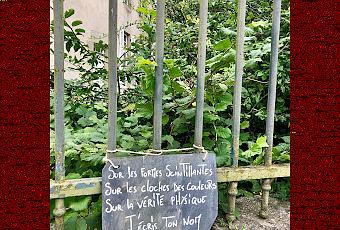 Sur les fortes scintillantes
Sur les cloches des couleurs
Sur la vérité physique
J'écris ton nom